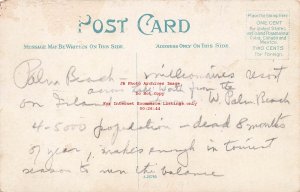 POST CARD
Place the Stamp here
ONE CENT
for United States
and Island Possessions
Cuba, Canada and
Mexico
TWO CENTS
for Foreign.
MESSAGE MAY BE WRITTEN ON THIS SIDE.
ADDRESS ONLY ON THIS SIDE.
Palm Beach - millionaires resort
across from the
on Island W. Palm Beach
For Internet Ecommerce Listings only
Do Not Copy
4-5000 population - dead 8 months
of year, makes enough in tourist
season to run the balance